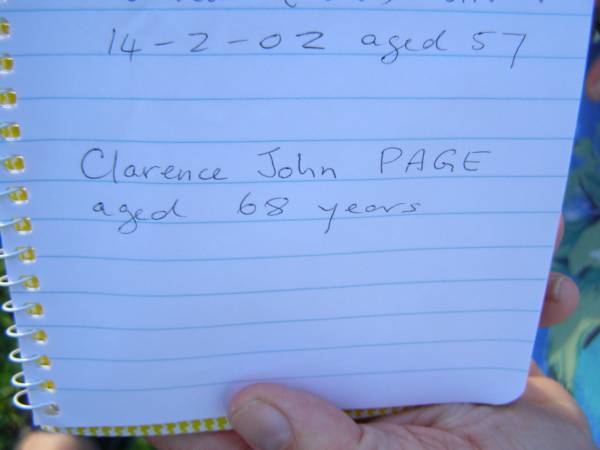 14-2-02 aged 57
Clarence John PAGE
aged 68 years